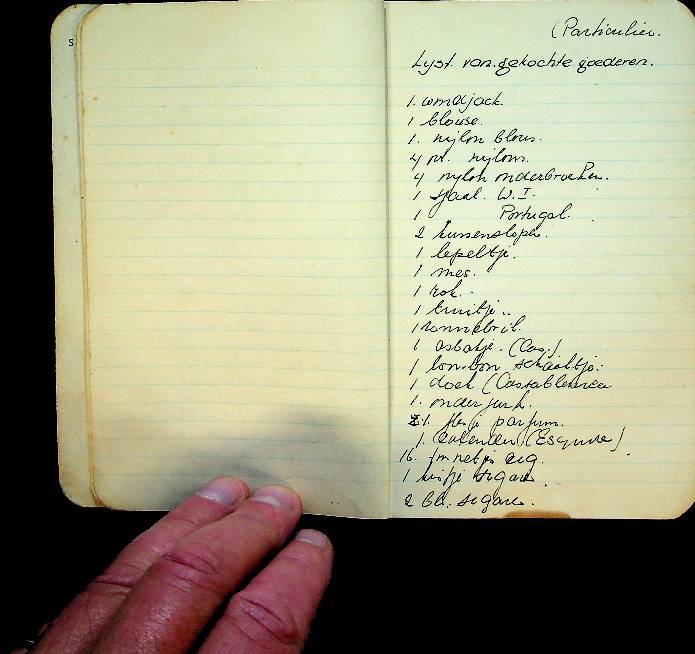 S
(Particulier.
Lyst van gekochte goederen.
1. windjack.
1 blouse.
1. nylon blous.
4 pr. nylons.
4 nylon onderbroeken.
1 sjaal. W.I.
1 Portugal.
2 kussenslopen.
1 lepeltje.
1 mes.
1 rok.
1 truitje..
1 zonnebril.
1 asbakje. (Cas.)
1 bon-bon schaaltje.
1 doek (Cassablanca
1. onderjurk.
1. flesje parfum.
1. (Esquire)
16. sig.
1 kistje sigaren
2 bl. sigaren.